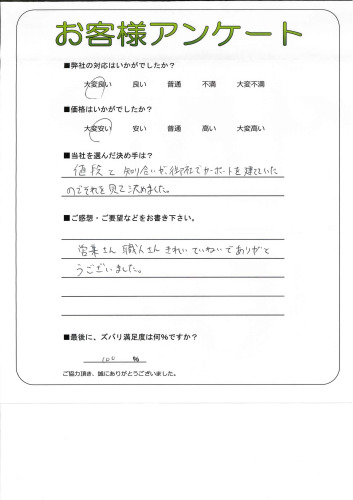 お客様アンケート
■弊社の対応はいかがでしたか?
大変良い 良い 普通 不満 大変不満
■価格はいかがでしたか?
大変安い 安い 普通 高い 大変高い
■当社を選んだ決め手は?
価段と 知り合いが、御社でカーポートを建てていた
のでそれを見て決めました。
■ご感想・ご要望などをお書き下さい。
営業さん 職人さん きれい ていねいでありがと
うございました。
■最後に、ズバリ満足度は何%ですか?
100 %
ご協力頂き、誠にありがとうございました。